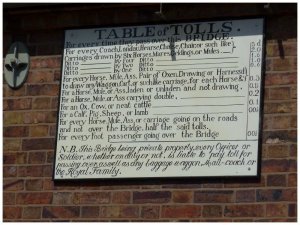 TABLE of TOLLS.
For every time they pass over this BRIDGE.
For every Coach, Landau, Hearse, Chaise, Chair or such like
Carriages drawn by Six Horses, Mares, Geldings or Mules
Ditto by Four Ditto
Ditto by Two Ditto
Ditto by One Ditto
For every Horse, Mule, Ass, Pair of Oxen, Drawing or Harness'd
to draw any Waggon, Cart, or such like carriage, for each Horse &c
For a Horse, Mule, or Ass, laden or unladen and not drawing.
For a Horse, Mule, or Ass carrying double.
For an Ox, Cow, or neat cattle
For a Calf, Pig, Sheep, or lamb
For every Horse, Mule, Ass, or carriage going on the roads
and not over the Bridge, half the said tolls.
For every foot passenger going over the Bridge
N.B. This Bridge being private property, every Officer or
Soldier, whether on duty or not, is liable to pay toll for
passing over, as well as any baggage waggon, Mail-coach or
the Royal Family.